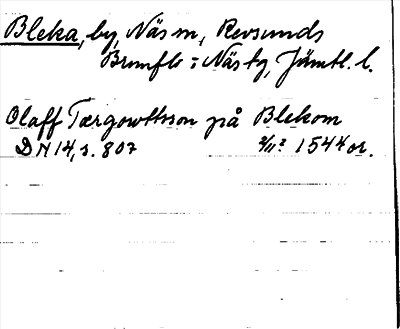 Bleka, by, Näs sn, Revsunds
Brunflo : Näs tg, Jämtl. l.
Olaff Tærgowttsson på Blekom
DN 14, s. 807 2/11? 1544 or.